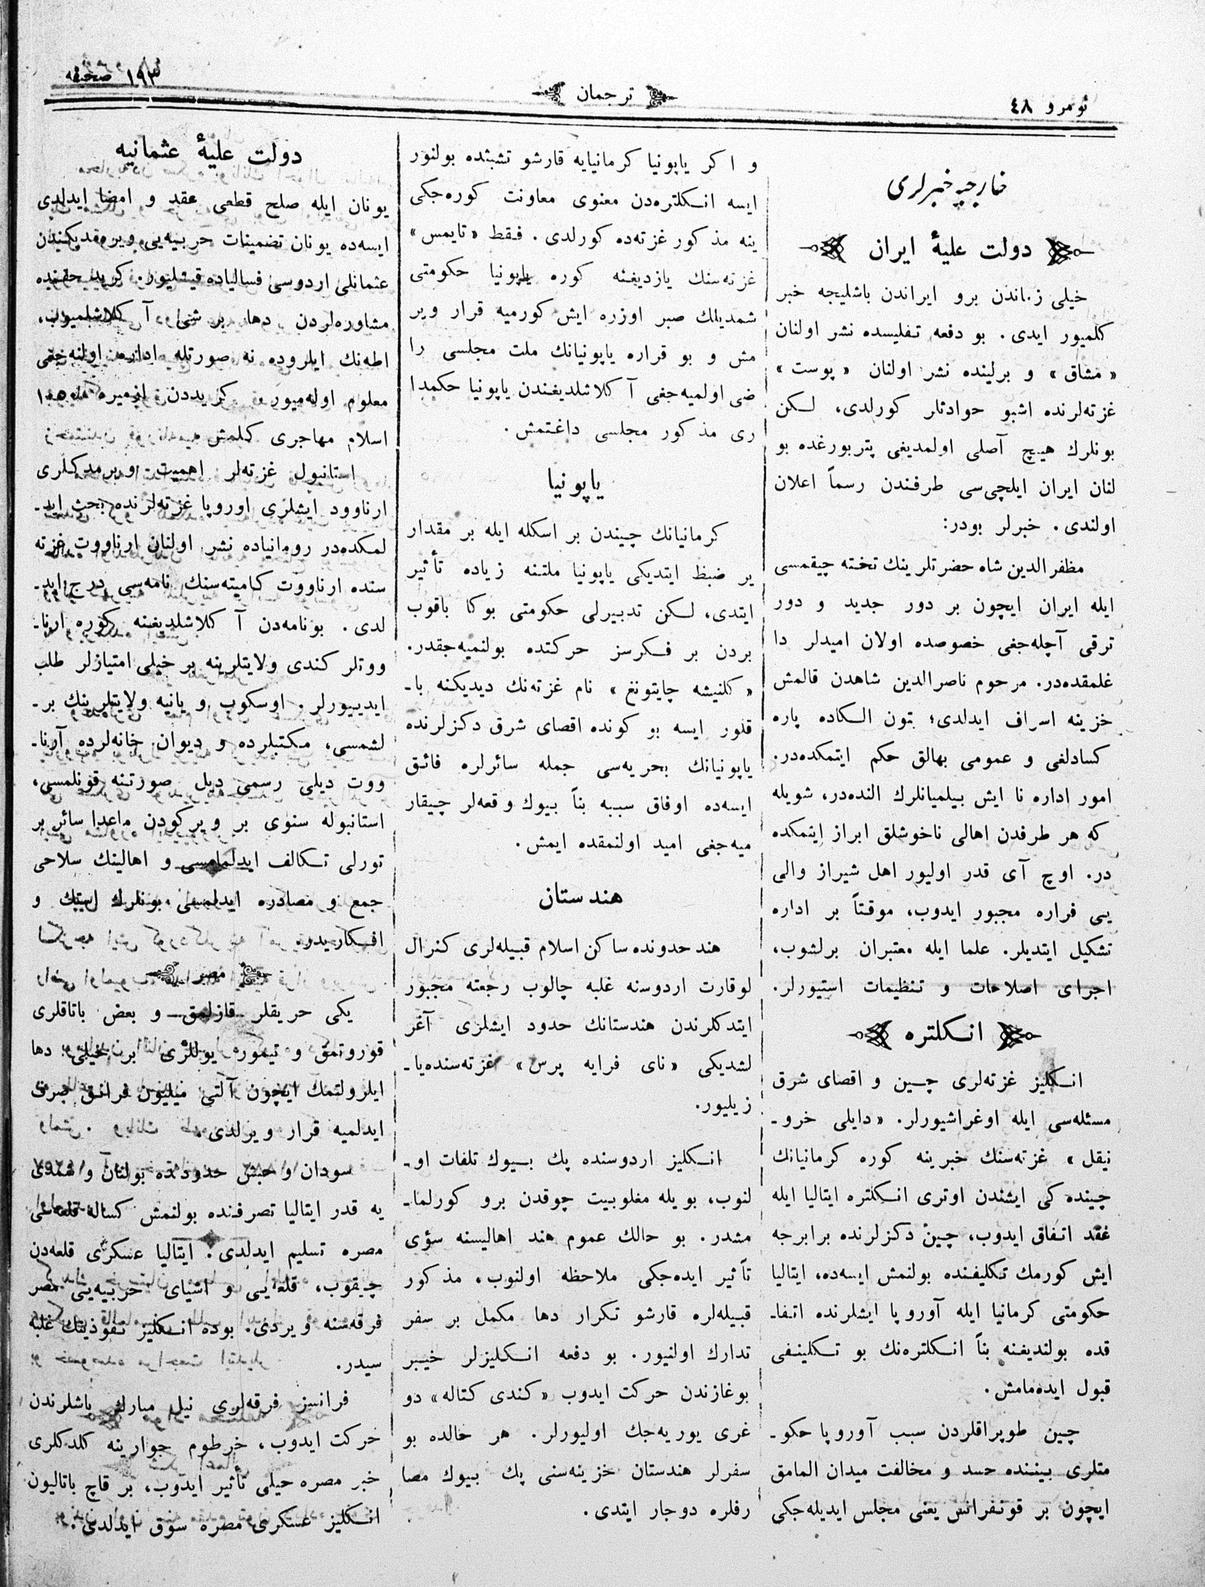 نومرو ٤٨
ترجمان
١٩٣ صحيفه
خارجيه خبرلرى
دولت عليۀ ايران
خيلى زماندن برو ايراندن باشليجه خبر
كلميور ايدى. بو دفعه تفليسده نشر اولنان
«مشاق» و برلينده نشر اولنان «پوست»
غزته‌لرنده اشبو حوادثلر كورلدى، لـكن
بونلرك هيچ آصلى اولمديغى پتربورغده بو
لنان ايران ايلچى‌سى طرفندن رسماً اعلان
اولندى. خبرلر بودر:
مظفرالدين شاه حضرتلرينك تخته چيقمسى
ايله ايران ايچون بر دور جديد و دور
ترقى آچله‌جغى خصوصده اولان اميدلر دا
غلمقده‌در. مرحوم ناصرالدين شاهدن قالمش
خزينه اسراف ايدلدى؛ بتون الـكاده پاره
كسادلغى و عمومى بهالق حكم ايتمكده‌در.
امور اداره نا ايش بيلميانلرك النده‌در، شويله
كه هر طرفدن اهالى ناخوشلق ابراز ايتمكده
در. اوچ آى قدر اوليور اهل شيراز والى
يى فراره مجبور ايدوب، موقتاً بر اداره
تشكيل ايتديلر. علما ايله معتبران برلشوب،
اجراى اصلاحات و تنظيمات استيورلر.
انـكلتره
انـكليز غزته‌لرى چـين و اقصاى شرق
مسئله‌سى ايله اوغراشيورلر. «دايلى خرو-
نيقل» غزته‌سنك خبرينه كوره كرمانيانك
چينده كى ايشندن اوترى انـكلتره ايتاليا ايله
عقد اتفاق ايدوب، چين دكزلرنده برابرجه
ايش كورمك تكليفنده بولنمش ايسه‌ده، ايتاليا
حكومتى كرمانيا ايله آوروپا ايشلرنده اتفا-
قده بولنديغنه بناً انـكلتره‌نك بو تـكلينـفى
قبول ايده‌مامش.
چين طوپراقلردن سبب آوروپا حكو-
متلرى بيننده حسد و مخالفت ميدان المامق
ايچون بر قونفرانس يعنى مجلس ايديله‌جكى
و اكر ياپونيا كرمانيايه قارشو تشبثده بولنور
ايسه انـكلتره‌دن معنوى معاونت كوره‌جكى
ينه مذكور غزته‌ده كورلدى. فـقط «تايمس»
غزته‌سنك يازديغنه كوره ياپونيا حكومتى
شمديلك صبر اوزره ايش كورميه قرار وير
مش و بو قراره ياپونيانك ملت مجلسى را
ضى اولميه‌جغى آكلاشلديغندن ياپونيا حكمدا
رى مذكور مجلسى داغـتمش.
ياپونيا
كرمانيانك چيندن بر اسكله ايله بر مقدار
ير ضبط ايتديكى ياپونيا ملتنه زياده تأثير
ايتدى، لـكن تدبيرلى حكومتى بوكا باقوب
بردن بر فـكرسز حركتده بولنميه‌جقدر.
«كلنيشه چايتونغ» نام غزته‌نك ديديكنه با-
قلور ايسه بو كونده اقصاى شرق دكزلرنده
ياپونيانك بحريه‌سى جمله سائرلره فائـق
ايسه‌ده اوفاق سببه بناً بيوك وقعه‌لر چيقار
ميه‌جغى اميد اولنمقده ايمش.
هندستان
هند حدونده ساكن اسلام قبيله‌لرى كنرال
لوقارت اردوسنه غلبه چالوب رجعته مجبور
ايتدكلرندن هندستانك حدود ايشلرى آغر
لشديكى «ناى فرايه پرس» غزته‌سنده‌يا-
زيليور.
انـكليز اردوسنده پك بـيوك تلفات او-
لنوب، بويله مغلوبيت چوقدن برو كورلما-
مشدر. بو حالك عموم هند اهاليسنه سؤى
تأثير ايده‌جكى ملاحظه اولنوب، مذكور
قبيله‌لره قارشو تكرار دها مكمل بر سفر
تدارك اولنيور. بو دفعه انـكليزلر خيبر
بوغازندن حركت ايدوب «كندى كتاله» دو
غرى يوريه‌جك اوليورلر. هر حالده بو
سفرلر هندستان خزينه‌سنى پك بـيوك مصا
رفلره دوچار ايتدى.
دولت عليۀ عثمانيه
يونان ايله صلح قطعى عقد و امضا ايدلدى
ايسه‌ده يونان تضمينات حربيه‌يى ويرمديكندن
عثمانلى اردوسى فساليا‌ده قيشليور. كريد حقنده
مشاوره‌لردن دها بر شى آكلاشلميوب،
اطه‌نك ايلروده نه صورتله اداره اولنه‌جغى
معلوم اوله‌ميور. كريددن ازميره
اسلام مهاجرى كلمش.
استانبول غزته‌لر اهميت ويرمدكلرى
ارناوود ايشلرى اوروپا غزته‌لرنده بحث ايد-
لمكده‌در رومانياده نشر اولنان ارناووت غزته
سنده ارناووت كاميته‌سنك نامه‌سى درج ايد-
لدى. بو نامه‌دن آكلاشلديغنه كوره ارنا-
ووتلر كندى ولايتلرينه بر خيلى امتيازلر طلب
ايديـيورلر. اوسكوب و يانيه ولايتلرينك بر-
لشمسى، مكتبلرده و ديوان خانه‌لرده آرنا-
ووت ديلى رسمى ديل صورتنه قونلمسى،
استانبوله سنوى بر ويركودن ماعدا سائر بر
تورلى تـكالف ايدلمامسى و اهالينك سلاحى
جمع و مصادره ايدلمسى بونلرك استك و
افـكاريدر.
مصر
يكى حريقلر قازلمق و بعض باتاقلرى
قوروتمق و تيمور يوللرى بر خيلى دها
ايلرولتمك ايچون آلتى ميليون فرانق صرف
ايدلميه قرار ويرلدى.
سودان و حبش حدودنده بولنان و شمدى
يه قدر ايتاليا تصرفنده بولنمش كساله قلعه‌سى
مصره تسليم ايدلدى. ايتاليا عسكرى قلعه‌دن
چيقوب، قلعه‌يى و اشياى حربيه‌يى مصر
فرقه‌سنه ويردى. بوده انـكليز نفوذينك غلبه
سيدر.
فرانسز فرقه‌لرى نيل مبارك باشلرندن
حركت ايدوب، خرطوم جوارينه كلدكلرى
خبر مصره خيلى تأثير ايدوب، بر قاچ باتاليون
انـكليز عسكرى مصره سوق ايدلدى.